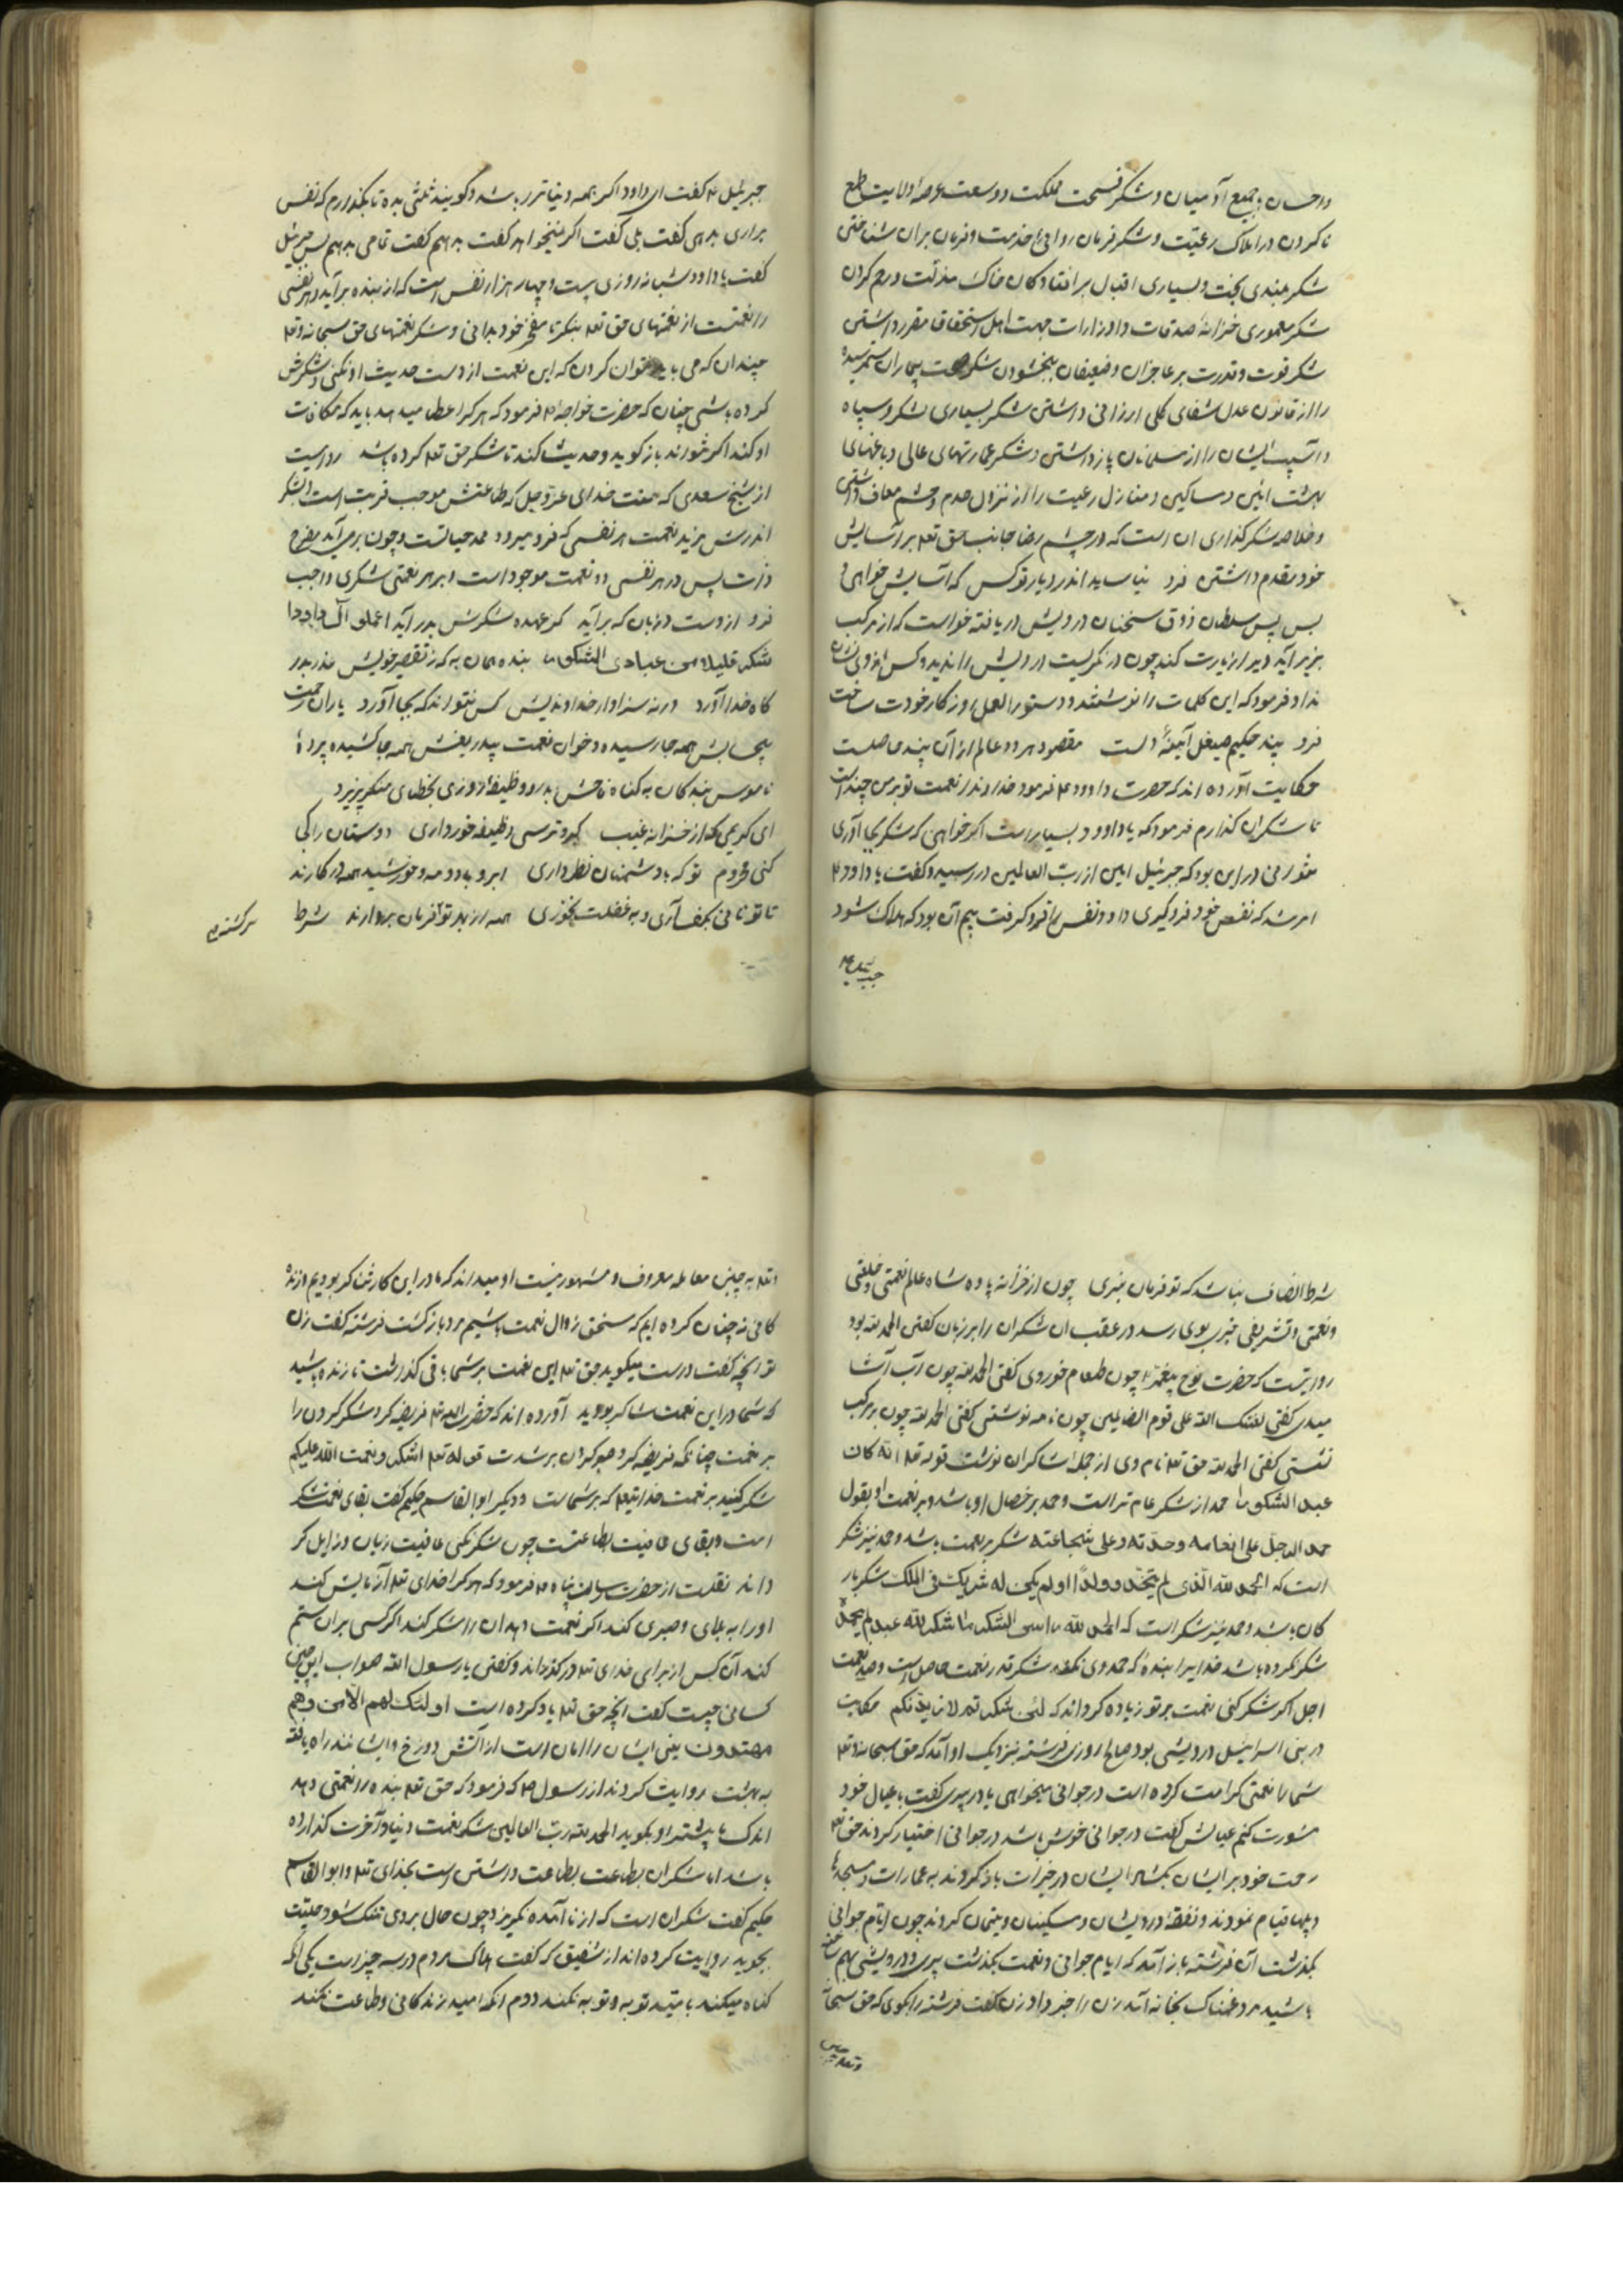 و احسان با جمیع آدمیان و شکر فسحت مملکت و وسعت عرصهٔ ولایت طمع
ناکردن در املاک رعیّت و شکر فرمان روائی حق خدمت و فرمان بران شناختن
شکر بلندی بخت و بسیاری اقبال بر افتادکان خاک مذلّت و رحم کردن
شکر معموری خزانهٔ صدقات و ادرارات جهت اهل استحقاق مقرر داشتن
شکر قوت و قدرت بر عاجزان و ضعیفان بخشودن شکر صحت بیماران ستم رسیده
را از قانون عدل شفای کلی ارزانی داشتن شکر بسیاری لشکر و سپاه
و آسیب ایشان را از مسلمانان باز داشتن و شکر عمارتهای عالی و باغهای
بهشت آئین و مساکین و منازل رعیت را از نزول حدم و حشم معاف داشتن
و خلاصه شکر گذاری ان است که در چشم رضا جانب حق تعه بر آسایش
خود مقدم داشتن فرد نیاساید اندر دیار تو کس که آسایش خواهی و
بس پس سلطان ذوق سخنان درویش دریافته خواست که از مرکب
بزیر آید و یرا زیارت کند چون در نکریست درویش را ندید و کس از وی نشان
نداد فرمود که این کلمات را نوشتند و دستور العمل روزکار خودت ساخت
فرد پند حکیم صیقل آئینهٔ دلست مقصود هر دو عالم از آن پند حاصلست
حکایت آورده اند که حضرت داوود ع فرمود خداوندا نعمت تو بر من چند است
تا شکر ان کذارم فرمود که یا داوود بسیار است اکر خواهی که شکر بجا آری
نتوانی در این بود که جبرئیل امین از ربّ العالمین در رسید و کفت یا داود ع
امر شد که نفس خود فرو کیری داوود نفس را فرو کرفت بیم آن بود که هلاک شود
جبرئیل ع
جبرئیل ع کفت ای داود اکر همه دنیا ترا باشد و کویند ثلثی بده تا بکذارم که نفس
براری بدهی کفت بلی کفت اکر نیمی خواهد کفت بدهم کفت تمامی بدهم پس جبرئیل
کفت یا داوود شبانه روزی بیست و چهار هزار نفس است که از بنده بر آید و هر نفسی
را نعمتست از نعمتهای حق تعه بنکر تا عجز خود بدانی و شکر نعمتهای حق سبحانه و تعه
چندان که می باید نتوان کردن که این نعمت از دست حدیث او نکنی و شکرش
کرده باشی چنان که حضرت خواجهٔ ع فرمود که هر کرا عطا میدهد باید که مکافات
او کند اکر نتواند باز کوید و حدیث کند تا شکر حق تعه کرده باشد روایت
از شیخ سعدی که منت خدای عزّ و جل که طاعتش موجب قربت است و بشکر
اندرش مزید نعمت هر نفسی که فرو میرود ممد حیاتست و چون بر می آید مفرح
ذات پس در هر نفسی دو نعمت موجود است و بر هر نعمتی شکری واجب
فرد از دست و زبان که بر آید کز عهده شکرش بدر آید اعملو آل داود
شکر قلیلا من عبادی الشکور بنده همان به که ز تقصیر خویش عذر بدر
کاه خدا آورد ورنه سزاوار خداوندیش کس نتواند که بجا آورد باران رحمت
بیحسابش همه جا رسیده و خوان نعمت بیدریغش همه جا کشیده پردهٔ
ناموس بندکان به کناه فاحش ندرد و وظیفهٔ روزی بخطای منکر نبرد
ای کریمی که از خزانه غیب کبر و ترسی وظیفه خور داری دوستان را کجا
کنی محروم تو که با دشمنان نظر داری ابر و باد و مه و خورشید همه در کارند
تا تو نانی بکف آری و به غفلت نخوری همه از بهر تو فرمان بردارند شرط
شرط انصاف نباشد که تو فرمان نبری چون از خزانه پادشاه عالم نعمتی و خلعتی
و نعمتی و تشریفی خبر بوی رسد در عقب ان شکران را بر زبان کفتن الحمد لله بود
روایتست که حضرت نوح پیغمبر ع چون طعام خوردی کفتی الحمد لله چون آب آشا
میدی کفتی لعنت الله علی قوم الضالمین چون جامه پوشیدی کفتی الحمد لله چون بر مرکب
نشستی کفتی الحمد لله حق تعه نام وی از جملهٔ شاکران نوشت قوله تعه انّه کان
عبدا شکورا حمد از شکر عام تر است و حمد بر خصال او باشد و بر نعمت او بقول
حمد الرجل علی انعامه و حدّته و علی شجاعته شکر بر نعمت باشد و حمد نیز شکر
است که الحمد لله الّذی لم یتّخذ ولداً و لم یکن له شریک فی الملک شکر یار
کان باشد و حمد نیز شکر است که الحمد لله راس الشکر ما شکر الله عبد لم یحمده
شکر نکرده باشد خدایرا بندهٔ که حمد وی نکفت شکر قدر نعمت حاصل است و صید نعمت
اجل اکر شکر کنی نعمت بر تو زیاده کرداند که لئن شکرتم لازیدنّکم حکایت
در بنی اسرائیل درویشی بود صالح روزی فرشته بنزدیک او آمد که حق سبحانه و تعه
شما را نعمتی کرامت کرده است در جوانی میخواهی یا در پیری کفت با عیال خود
مشورت کنم عیالش کفت در جوانی خوش باشد در جوانی اختیار کردند حق تعه
رحمت خود بر ایشان بکشاد ایشان در خیرات باز کردند به عمارات و مسجدها
و پلها قیام نمودند و نفقهٔ درویشان و مسکینان و یتیمان کردند چون ایّام جوانی
بکذشت آن فرشته باز آمد که ایام جوانی و نعمت بکذشت پیری و درویشی بهم ساخته
باشید مرد غمناک بخانه آمد زن را خبر داد زن کفت فرشته را بکوی که حق سبحانه
و تعه به چنین
و تعه به چنین معامله معروف و مشهور نیست او میداند که ما در این کار شاکر بودیم از زنده
کانی نه چنان کرده ایم که مستحق زوال نعمت باشیم مرد باز کشت فرشته کفت زن
تو آنچه کفت درست میکوید حق تعه این نعمت بر شما باقی کذاشت تا زنده باشید
که شما در این نعمت شاکر بودید آورده اند که حضرت الله تعه فریضه کرد شکر کردن را
بر نعمت چنانکه فریضه کرد صبر کردن بر شدّت قوله تعه اشکرو نعمت الله علیکم
شکر کنید بر نعمت خدایتعه که بر شماست و دیکر ابوالقاسم حکیم کفت بقای نعمت شکر
است و بقای عافیت بطاعتست چون شکر نکنی عافیت زیان و زایل کر
داند نقلست از حضرت رسالت پناه ص فرمود که هر کرا خدای تعه آزمایش کند
او را به بلای و صبری کند اکر نعمت دهد ان را شکر کند اکر کسی بر ان ستم
کند آن کس از برای خدای تعه در کذراند و کفتی یا رسول الله صواب این چنین
کسانی چیست کفت آنچه حق تعه یاد کرده است اولئک لهم الامن و هم
مهتدون یعنی ایشان را امان است از آتش دوزخ و ایشانند راه یافته
به بهشت روایت کردند از رسول ص که فرمود که حق تعه بنده را نعمتی دهد
اندک یا بیشتر او بکوید الحمد لله ربّ العالمین شکر نعمت دنیا و آخرت کذارده
باشد اما شکران بطاعت بطاعت داشتن است بخدای تعه و ابوالقاسم
حکیم کفت شکران است که از نا آمده نکریزد چون حال بر وی تنک شود حلیّت
بجوید روایت کرده اند از شقیق که کفت هلاک مردم در سه چیز است یکی انکه
کناه میکند بامّید توبه و توبه نمیکند دوم انکه امید زندکانی و طاعت نمیکند